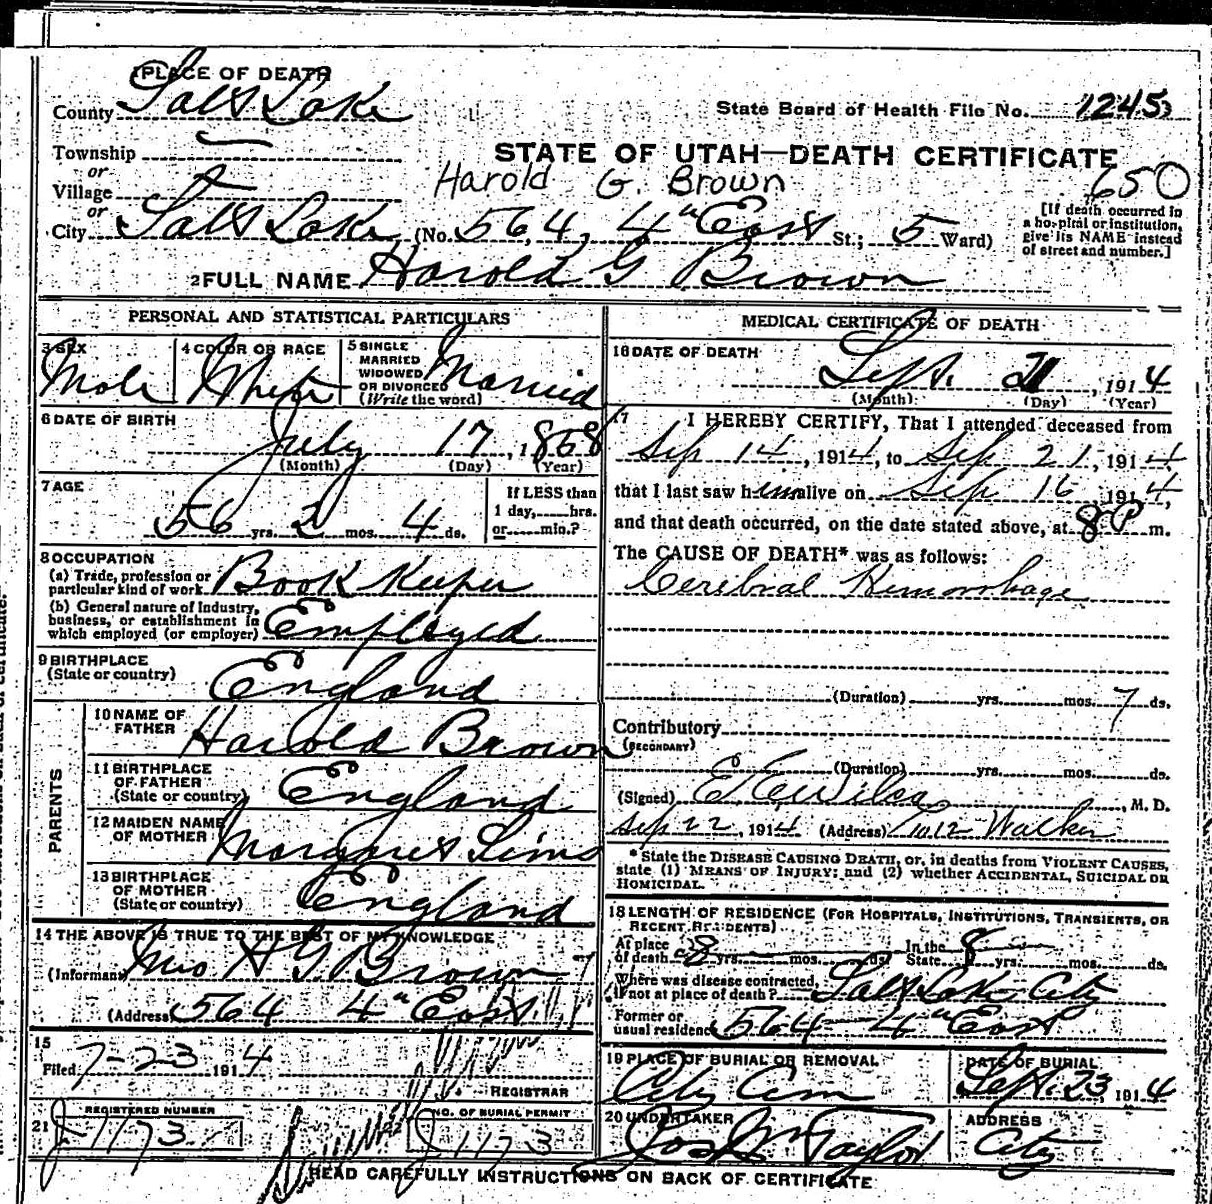 PLACE OF DEATH
County Salt Lake
State Board of Health File No. 1245
Township
or
STATE OF UTAH—DEATH CERTIFICATE
Village
Harold G. Brown
650
or
City Salt Lake (No. 564, 4" East St.; 5 Ward)
[If death occurred in
a hospital or institution,
give its NAME instead
of street and number.]
2 FULL NAME Harold G Brown
PERSONAL AND STATISTICAL PARTICULARS
3 SEX
Male
4 COLOR OR RACE
White
5 SINGLE
MARRIED
WIDOWED
OR DIVORCED
(Write the word)
Married
6 DATE OF BIRTH
July 17, 1858
(Month) (Day) (Year)
7 AGE
56 yrs. 2 mos. 4 ds.
If LESS than
1 day, hrs.
or min.?
8 OCCUPATION
(a) Trade, profession or
particular kind of work Book Keeper
(b) General nature of Industry,
business, or establishment in
which employed (or employer) Employed
9 BIRTHPLACE
(State or country) England
PARENTS
10 NAME OF
FATHER Harold Brown
11 BIRTHPLACE
OF FATHER
(State or country) England
12 MAIDEN NAME
OF MOTHER Margaret Sims
13 BIRTHPLACE
OF MOTHER
(State or country) England
14 THE ABOVE IS TRUE TO THE BEST OF MY KNOWLEDGE
(Informant) Mrs H G Brown
(Address) 564 4" East
15
Filed 7-23 1914
REGISTRAR
21 REGISTERED NUMBER
J 1173
NO. OF BURIAL PERMIT
J 1173
MEDICAL CERTIFICATE OF DEATH
16 DATE OF DEATH
Sept. 21, 1914
(Month) (Day) (Year)
17 I HEREBY CERTIFY, That I attended deceased from
Sep 14, 1914, to Sep 21, 1914,
that I last saw him alive on Sep 16 1914,
and that death occurred, on the date stated above, at 8 P m.
The CAUSE OF DEATH* was as follows:
Cerebral Hemorrhage
(Duration) yrs. mos. 7 ds.
Contributory
(SECONDARY)
(Duration) yrs. mos. ds.
(Signed) E E Wilcox, M. D.
Sep 22, 1914 (Address) 1012 Walker
* State the DISEASE CAUSING DEATH, or, in deaths from VIOLENT CAUSES,
state (1) MEANS OF INJURY; and (2) whether ACCIDENTAL, SUICIDAL OR
HOMICIDAL.
18 LENGTH OF RESIDENCE (FOR HOSPITALS, INSTITUTIONS, TRANSIENTS, OR
RECENT RESIDENTS)
At place
of death 8 yrs. mos. ds.
In the
State 8 yrs. mos. ds.
Where was disease contracted,
if not at place of death? Salt Lake City
Former or
usual residence 564 4" East
19 PLACE OF BURIAL OR REMOVAL
City Cem
DATE OF BURIAL
Sept. 23 1914
20 UNDERTAKER
Jos Wm Taylor
ADDRESS
City
READ CAREFULLY INSTRUCTIONS ON BACK OF CERTIFICATE